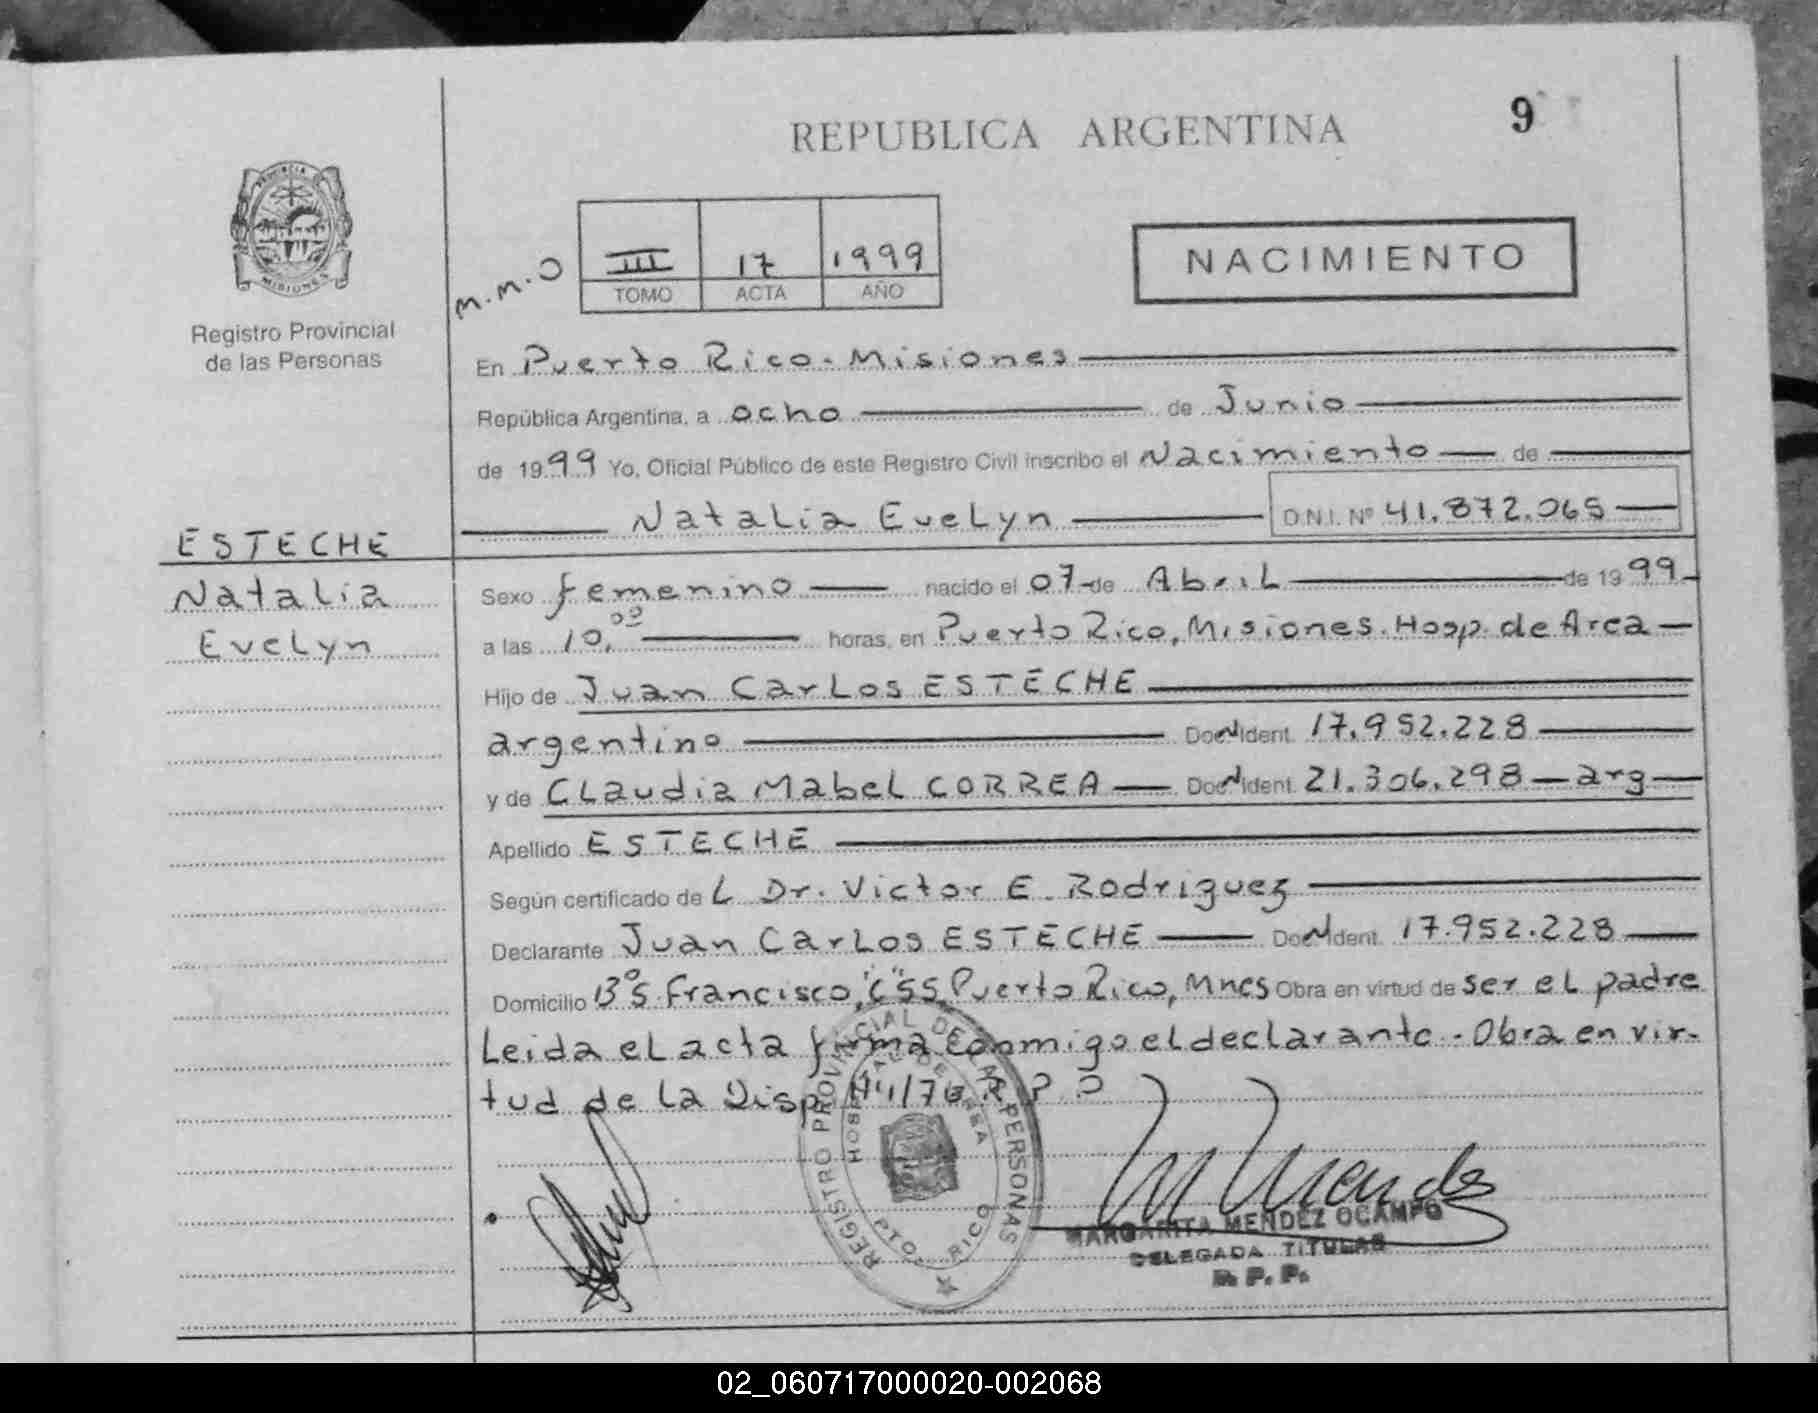 REPUBLICA ARGENTINA
9
PROVINCIA DE
MISIONES
Registro Provincial
de las Personas
m.m.o
III 17 1999
TOMO ACTA AÑO
NACIMIENTO
En Puerto Rico - Misiones
República Argentina, a ocho de Junio
de 1999 Yo, Oficial Público de este Registro Civil inscribo el Nacimiento de
Natalia Evelyn D.N.I. Nº 41.872.065
ESTECHE
Natalia
Evelyn
Sexo femenino nacido el 07 de Abril de 1999
a las 10,00 horas, en Puerto Rico, Misiones. Hosp. de Area
Hijo de Juan Carlos ESTECHE
argentino Doc. Ident. 17.952.228
y de Claudia Mabel CORREA Doc. Ident. 21.306.298 - arg
Apellido ESTECHE
Según certificado de L Dr. Victor E. Rodriguez
Declarante Juan Carlos ESTECHE Doc. Ident. 17.952.228
Domicilio Bº S. Francisco, "C" 55, Puerto Rico, Mnes Obra en virtud de ser el padre
Leida el acta firma conmigo el declarante. - Obra en vir-
tud de la Disp. R.P.P
REGISTRO PROVINCIAL DE LAS PERSONAS
HOSPITAL DE AREA
PTO. RICO
MARGARITA MENDEZ OCAMPO
DELEGADA TITULAR
R. P. P.
02_060717000020-002068